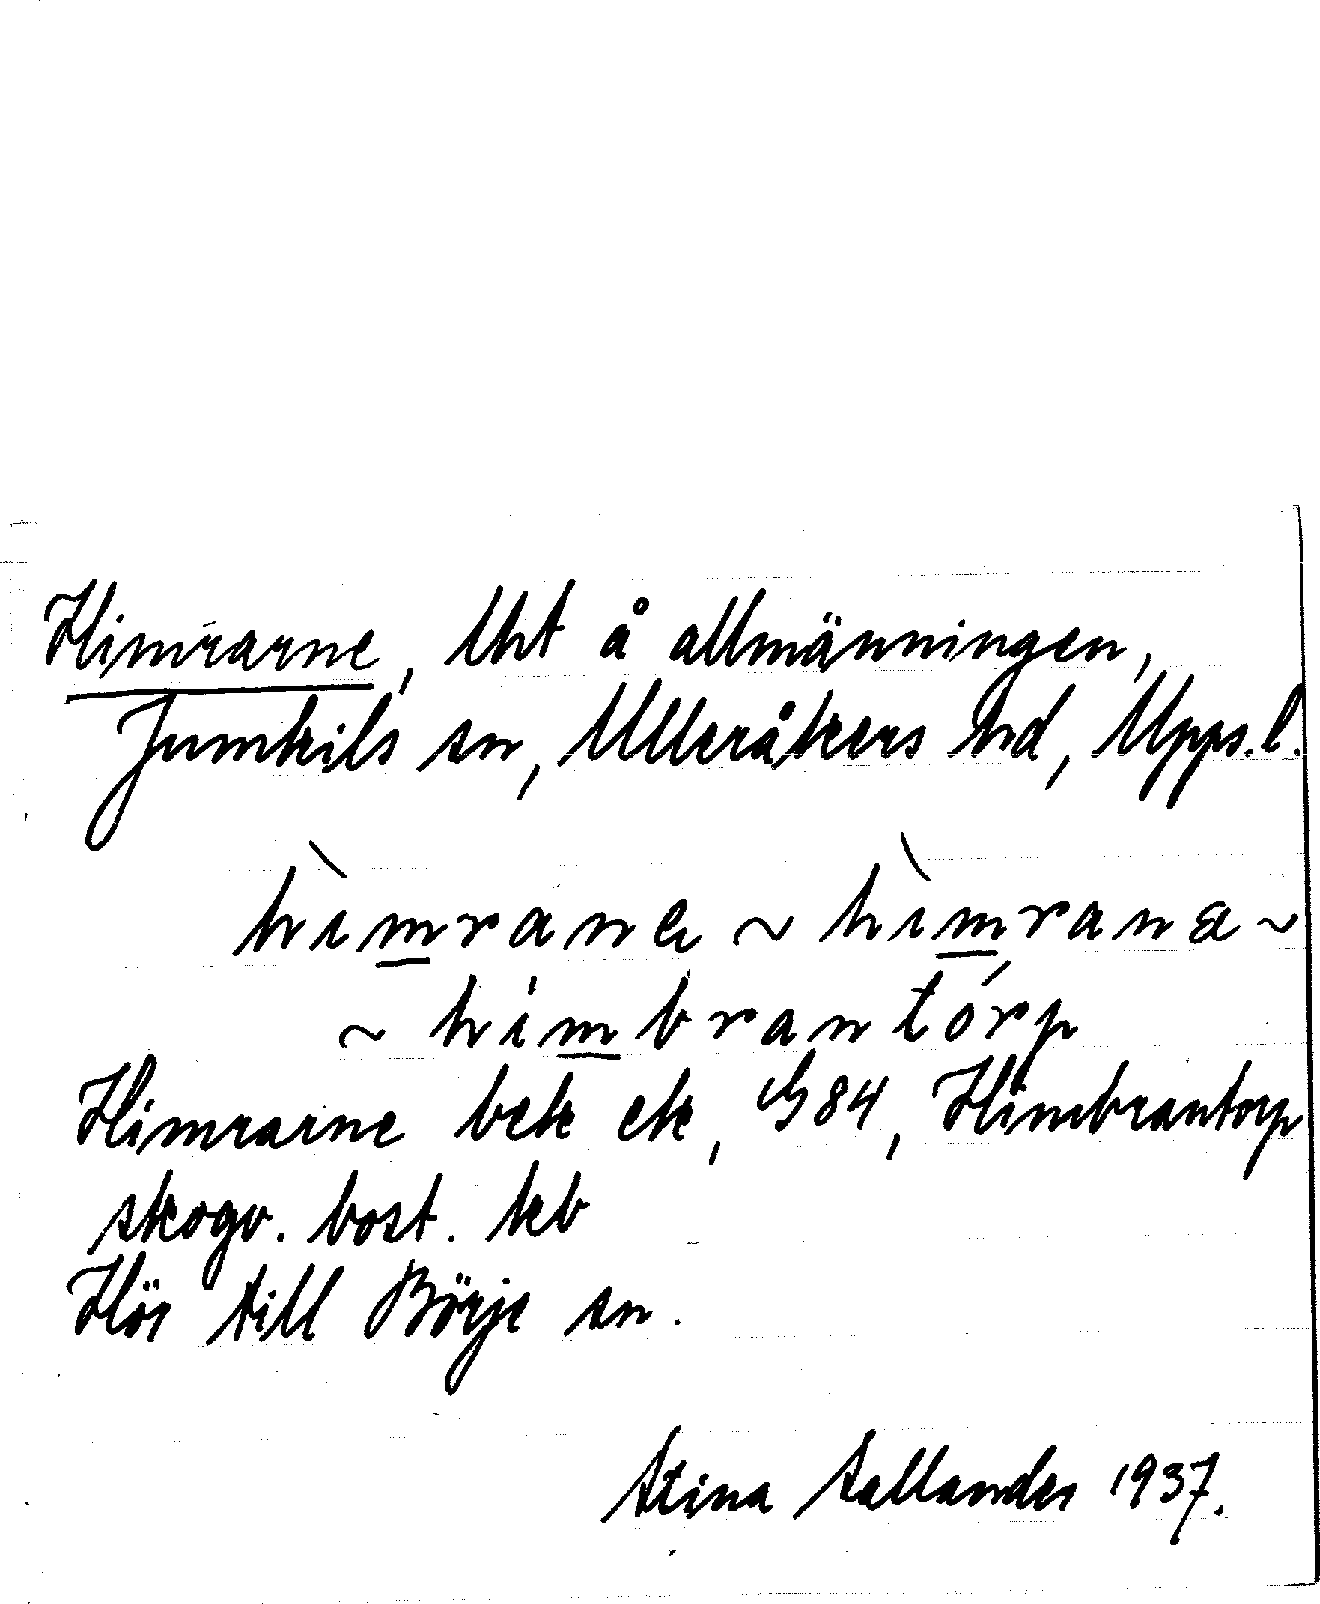 Himrarne, lht å allmänningen,
Jumkils sn, Ulleråkers hd, Upps. l.
hìmrana ~ hìmrana ~
~ himbrantórp
Himrarne bek ek, G 84, Himbrantorp
skogv. bost. kb
Hör till Börje sn.
Stina Sallander 1937.